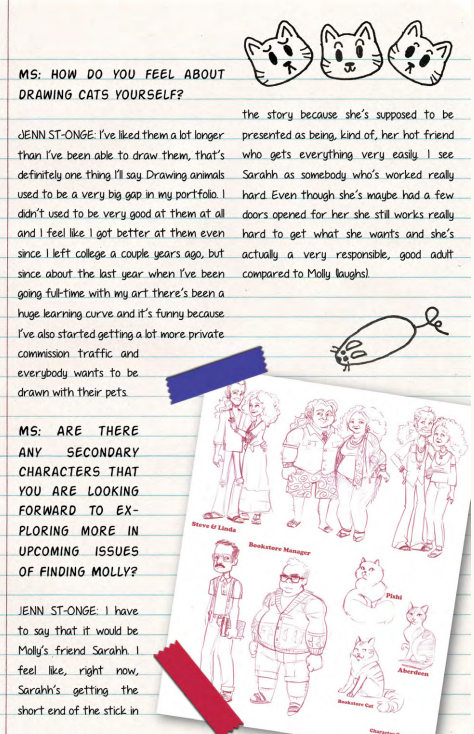 MS: HOW DO YOU FEEL ABOUT
DRAWING CATS YOURSELF?
JENN ST-ONGE: I've liked them a lot longer
than I've been able to draw them, that's
definitely one thing I'll say. Drawing animals
used to be a very big gap in my portfolio. I
didn't used to be very good at them at all
and I feel like I got better at them even
since I left college a couple years ago, but
since about the last year when I've been
going full-time with my art there's been a
huge learning curve and it's funny because
I've also started getting a lot more private
commission traffic and
everybody wants to be
drawn with their pets.
MS: ARE THERE
ANY SECONDARY
CHARACTERS THAT
YOU ARE LOOKING
FORWARD TO EX-
PLORING MORE IN
UPCOMING ISSUES
OF FINDING MOLLY?
JENN ST-ONGE: I have
to say that it would be
Molly's friend Sarahh. I
feel like, right now,
Sarahh's getting the
short end of the stick in
the story because she's supposed to be
presented as being, kind of, her hot friend
who gets everything very easily. I see
Sarahh as somebody who's worked really
hard. Even though she's maybe had a few
doors opened for her she still works really
hard to get what she wants and she's
actually a very responsible, good adult
compared to Molly (laughs).
Steve & Linda
Bookstore Manager
Pishi
Aberdeen
Bookstore Cat